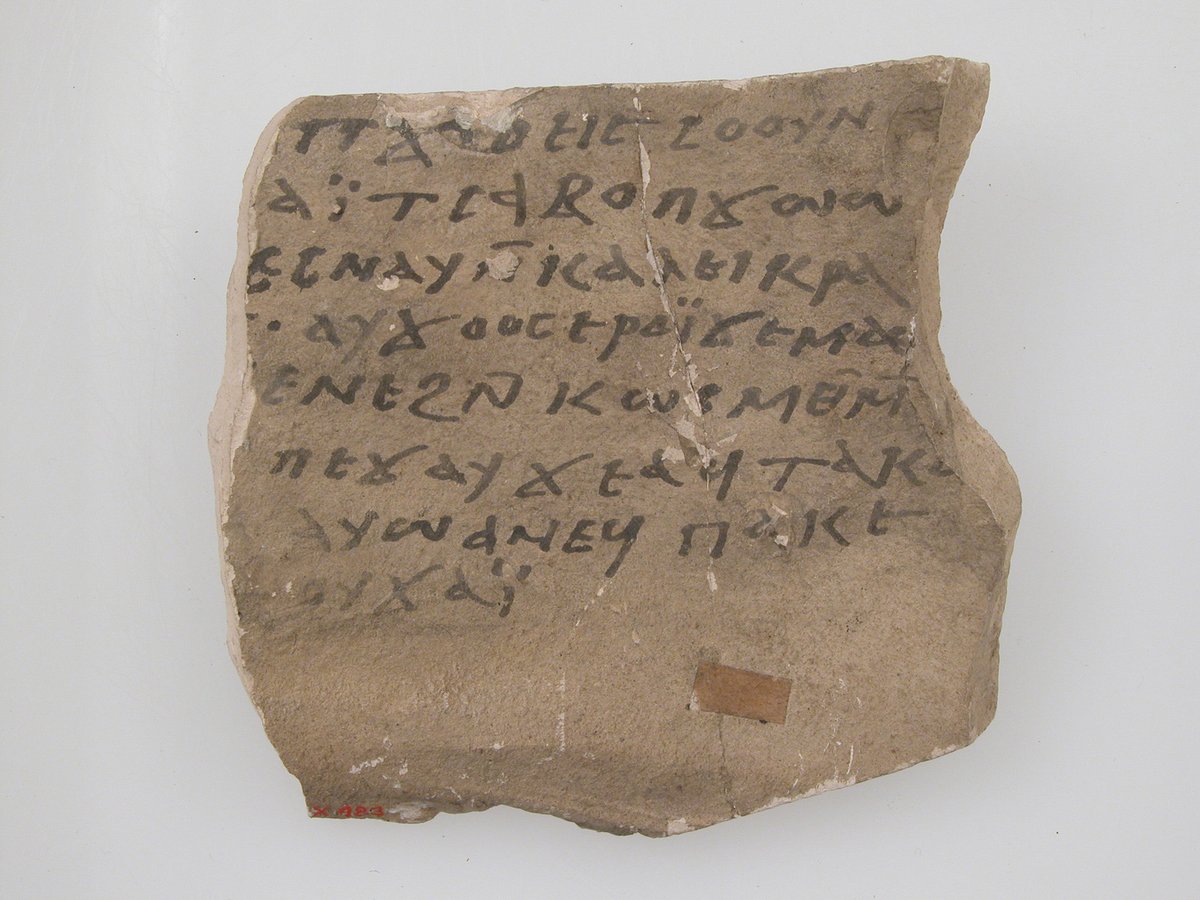 ⲡⲁⲉⲓⲉⲓⲥⲟⲟⲩⲛ
ⲁⲓ̈ⲧⲥⲁⲃⲟⲡϫⲱⲱ
ⲉⲥⲛⲁⲩⲛ̄ⲕⲁⲗⲉⲓⲕⲣⲁ
ⲁⲩϫⲟⲟⲥⲉⲣⲟⲓ̈ϭⲉⲙⲁ
ⲉⲛⲉϩⲛ̄ⲕⲱⲉⲙⲉⲙ̄
ⲡⲉϫⲁⲩϫⲉⲁϥⲧⲁⲕⲟ
ⲁⲩⲱⲁⲛⲉϥⲡⲁⲕⲉ
ⲟⲩϫⲁⲓ̈
X.483